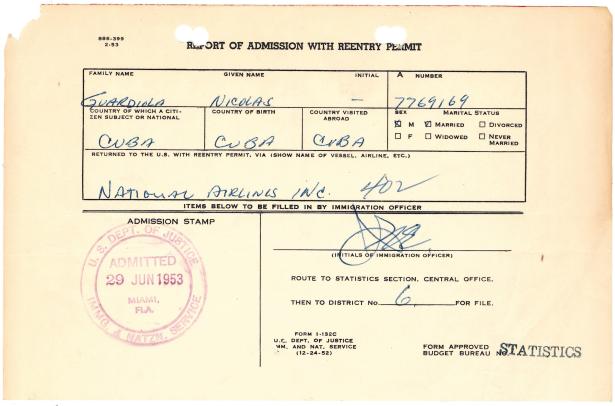 886-399
2-53
REPORT OF ADMISSION WITH REENTRY PERMIT
FAMILY NAME GIVEN NAME INITIAL A NUMBER
GUARDIOLA NICOLAS — 7769169
COUNTRY OF WHICH A CITIZEN SUBJECT OR NATIONAL COUNTRY OF BIRTH COUNTRY VISITED ABROAD SEX MARITAL STATUS
☒ M ☒ MARRIED ☐ DIVORCED
☐ F ☐ WIDOWED ☐ NEVER MARRIED
CUBA CUBA CUBA
RETURNED TO THE U.S. WITH REENTRY PERMIT, VIA (SHOW NAME OF VESSEL, AIRLINE, ETC.)
NATIONAL AIRLINES INC. 402
ITEMS BELOW TO BE FILLED IN BY IMMIGRATION OFFICER
ADMISSION STAMP
U. S. DEPT. OF JUSTICE
ADMITTED
29 JUN 1953
MIAMI,
FLA.
IMMG. & NATZN. SERVICE
(INITIALS OF IMMIGRATION OFFICER)
ROUTE TO STATISTICS SECTION, CENTRAL OFFICE.
THEN TO DISTRICT No. 6 FOR FILE.
FORM I-132C
U.S. DEPT. OF JUSTICE
IMM. AND NAT. SERVICE
(12-24-52)
FORM APPROVED
BUDGET BUREAU No.
STATISTICS